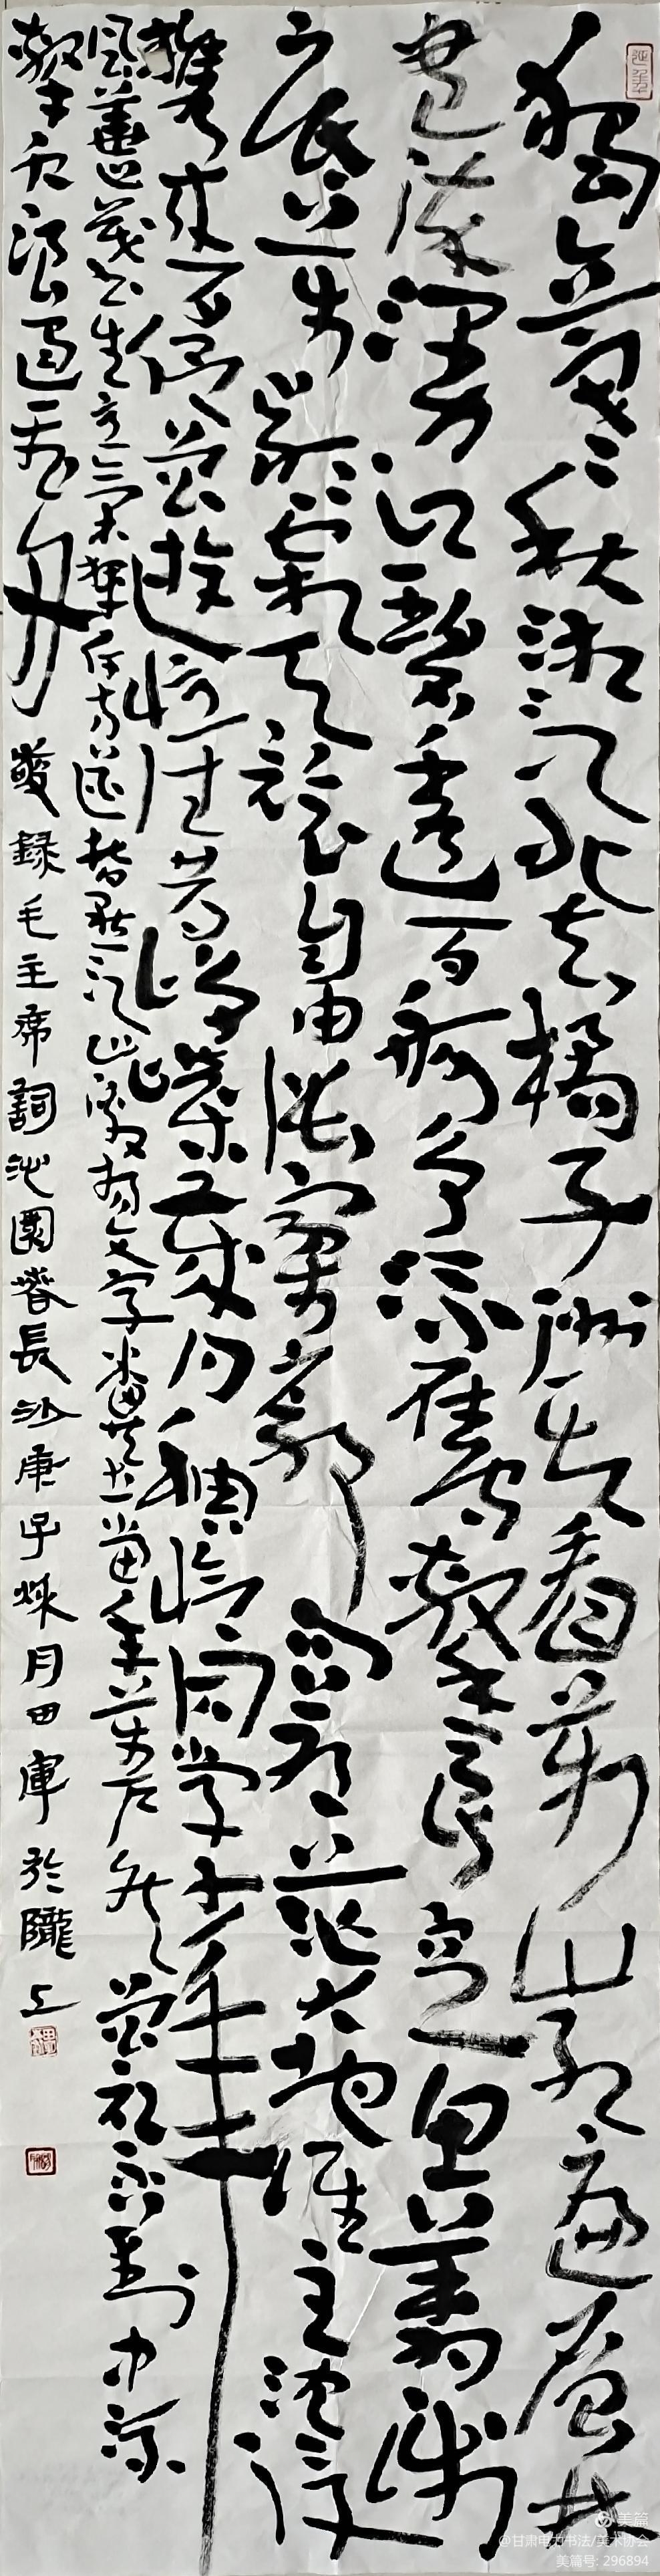 獨立寒秋湘江北去橘子洲頭看萬山紅遍層林
盡染漫江碧透百舸爭流鷹擊長空魚翔淺
底萬類霜天競自由悵寥廓問蒼茫大地誰主沈浮
攜來百侶曾遊憶往昔崢嶸歲月稠恰同學少年
風華正茂書生意氣揮斥方遒指點江山激揚文字糞土當年萬戶侯曾記否到中流
擊水浪遏飛舟
敬錄毛主席詞沁園春長沙庚子秋月田軍於隴上
美篇
@甘肃电力书法/美术协会
美篇号: 296894